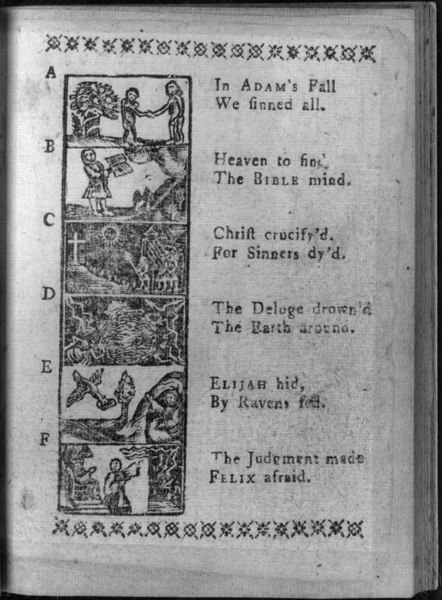 A
In ADAM's Fall
We ſinned all.
B
Heaven to find
The BIBLE mind.
C
Chriſt crucify'd,
For Sinners dy'd.
D
The Deluge drown'd
The Earth around.
E
ELIJAH hid,
By Ravens fed.
F
The Judgment made
FELIX afraid.